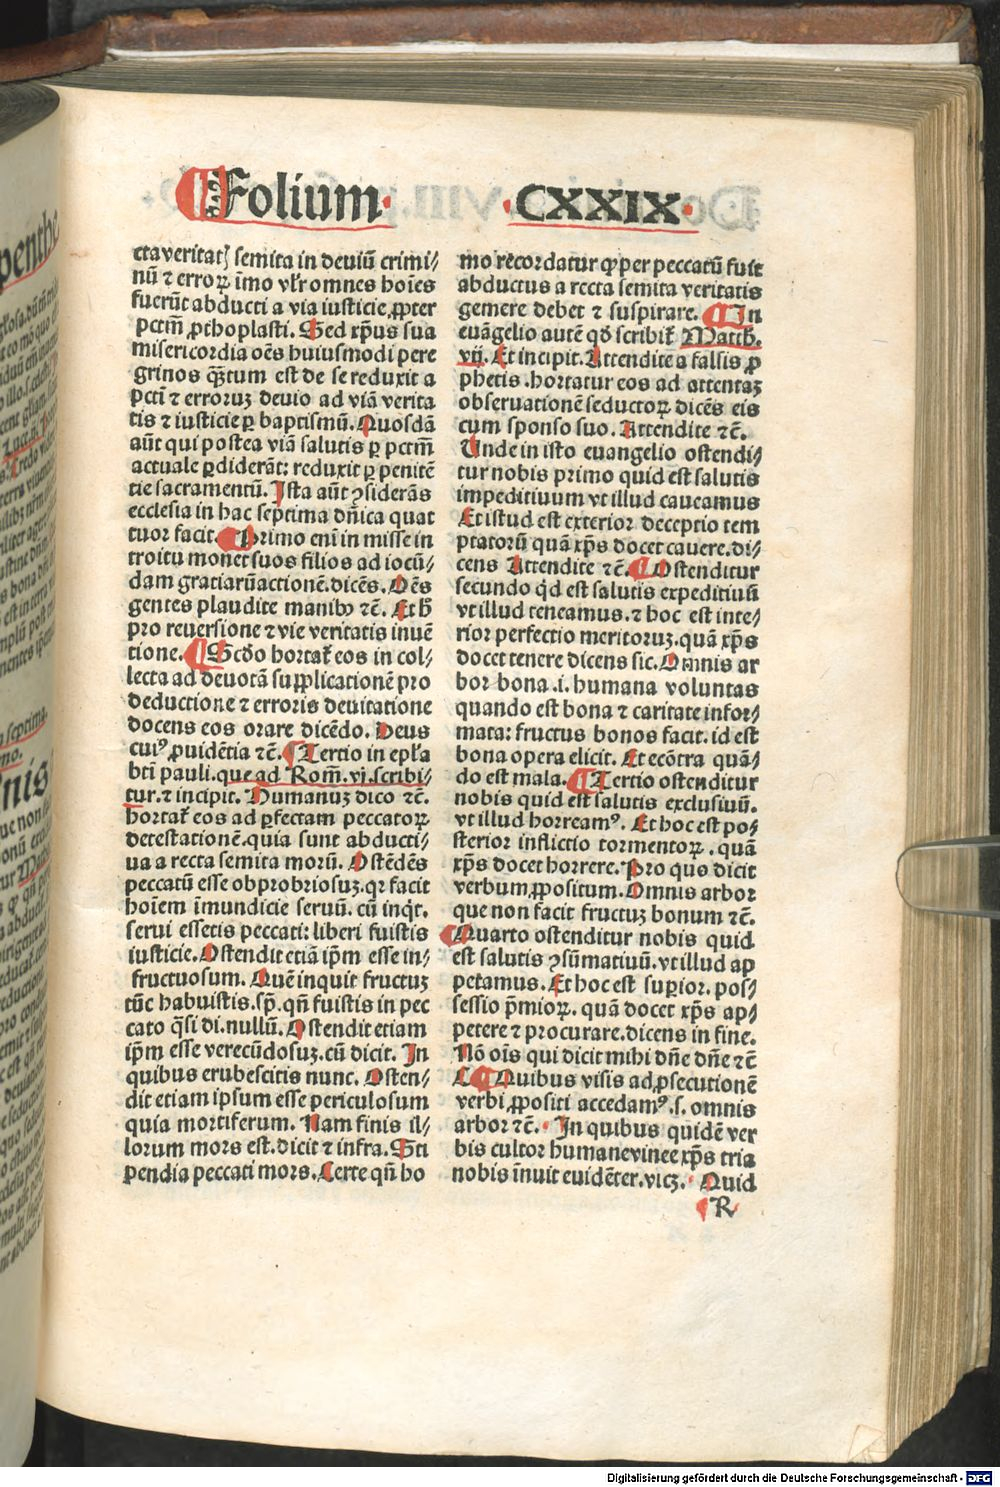 ¶ Folium CXXIX
cta veritatꝭ semita in deuiū crimi⸗
nū ⁊ erroꝝ īmo vl'r omnes hoīes
fuerūt abducti a via iusticie ꝓpter
pctm̄ ꝓthoplasti. Sed xp̄us sua
misericordia oēs huiusmodi pere
grinos qꝫtum est de se reduxit a
pcti ⁊ erroruꝫ deuio ad viā verita
tis ⁊ iusticie ꝑ baptismū. Quosdā
aūt qui postea viā salutis ꝑ pctm̄
actuale ꝑdiderāt: reduxit ꝑ penitē
tie sacramentū. Ista aūt ꝯsiderās
ecclesia in hac septima dn̄ica quat
tuor facit. ¶ Primo eni in misse in
troitu monet suos filios ad iocū⸗
dam gratiarū actionē. dicēs. Oēs
gentes plaudite manibꝰ ⁊c̄. Et h̄
pro reuersione ⁊ vie veritatis inuē
tione. ¶ Scd̄o hortat̄ eos in col⸗
lecta ad deuotā supplicationē pro
deductione ⁊ erroris deuitatione
docens eos orare dicēdo. Deus
cuiꝰ ꝓuidētia ⁊c̄. ¶ Tertio in ep̄la
bti pauli. que ad Rom̄. vj. scribi⸗
tur. ⁊ incipit. Humanuꝫ dico ⁊c̄.
hortat̄ eos ad ꝑfectam peccatoꝝ
detestationē. quia sunt abducti⸗
ua a recta semita morū. Ostēdēs
peccatū esse obprobriosuꝫ. qr facit
hoīem īmundicie seruū. cū inqt.
serui essetis peccati: liberi fuistis
iusticie. Ostendit etiā ip̄m esse in⸗
fructuosum. Quē inquit fructuꝫ
tūc habuistis. sp̄. qn̄ fuistis in pec
cato q̄si di. nullū. Ostendit etiam
ip̄m esse verecūdosuꝫ. cū dicit. In
quibus erubescitis nunc. Osten⸗
dit etiam ipsum esse periculosum
quia mortiferum. Nam finis il⸗
lorum mors est. dicit ⁊ infra. Sti
pendia peccati mors. Certe qn̄ ho
mo recordatur ꝙ per peccatū fuit
abductus a recta semita veritatis
gemere debet ⁊ suspirare. ¶ In
euāgelio autē qd̄ scribit̄ Matth.
vij. Et incipit. Attendite a falsis ꝓ
phetis. hortatur eos ad attentaꝫ
obseruationē seductoꝝ dicēs eis
cum sponso suo. Attendite ⁊c̄.
Unde in isto euangelio ostendi⸗
tur nobis primo quid est salutis
impeditiuum vt illud caueamus
Et istud est exterior deceptio tem
ptatorū quā xp̄s docet cauere. di⸗
cens Attendite ⁊c̄. ¶ Ostenditur
secundo qd̄ est salutis expeditiuū
vt illud teneamus. ⁊ hoc est inte⸗
rior perfectio meritoruꝫ. quā xp̄s
docet tenere dicens sic. Omnis ar
bor bona .i. humana voluntas
quando est bona ⁊ caritate infor⸗
mata: fructus bonos facit. id est
bona opera elicit. Et ecōtra quā⸗
do est mala. ¶ Tertio ostenditur
nobis quid est salutis exclusiuū.
vt illud horreamꝰ. Et hoc est pos⸗
sterior inflictio tormentoꝝ. quā
xp̄s docet horrere. Pro quo dicit
verbum ꝓpositum. Omnis arbor
que non facit fructuꝫ bonum ⁊c̄.
¶ Quarto ostenditur nobis quid
est salutis ꝯsūmatiuū. vt illud ap
petamus. Et hoc est suꝑior. pos⸗
sessio p̄mioꝝ. quā docet xp̄s ap⸗
petere ⁊ procurare. dicens in fine.
Nō oīs qui dicit mihi dn̄e dn̄e ⁊c̄
¶ Quibus visis ad ꝓsecutionē
verbi ꝓpositi accedamꝰ. s. omnis
arbor ⁊c̄. In quibus quidē ver
bis cultor humane vinee xp̄s tria
nobis īnuit euidēter. vicꝫ. Quid
R
Digitalisierung gefördert durch die Deutsche Forschungsgemeinschaft - DFG